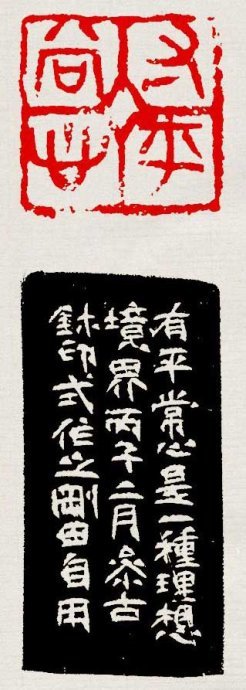 有平
常心
有平常心是一種理想
境界丙子二月參古
鉥印式作之剛田自用